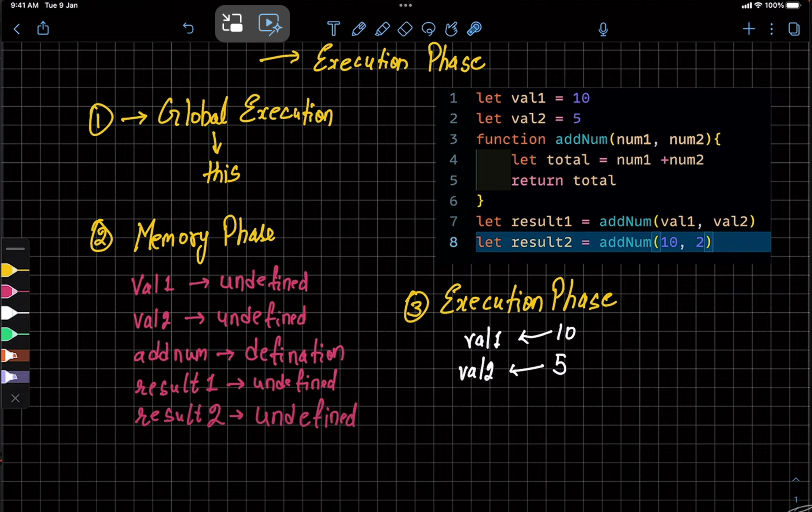 9:41 AM Tue 9 Jan
100%
→ Execution Phase
① → Global Execution
↓
this
② Memory Phase
Val1 → undefined
val2 → undefined
addnum → defination
result1 → undefined
result2 → undefined
1 let val1 = 10
2 let val2 = 5
3 function addNum(num1, num2){
4 let total = num1 +num2
5 return total
6 }
7 let result1 = addNum(val1, val2)
8 let result2 = addNum(10, 2)
③ Execution Phase
val1 ← 10
val2 ← 5
1